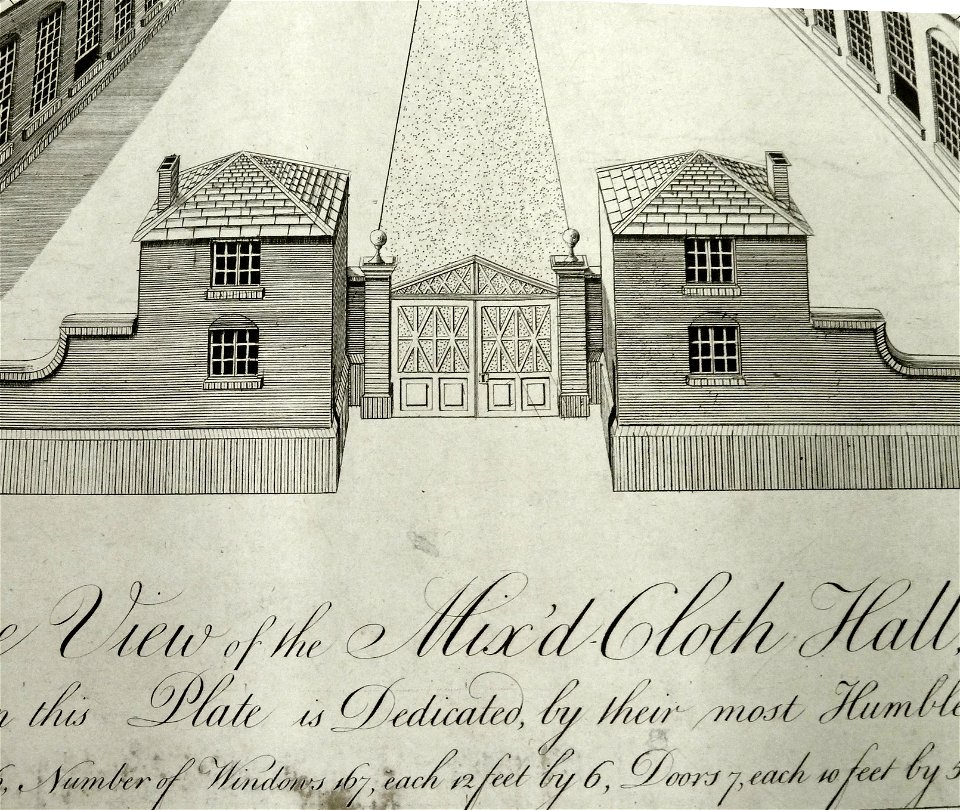 e View of the Mix'd Cloth Hall,
n this Plate is Dedicated, by their most Humble
6, Number of Windows 167, each 12 feet by 6, Doors 7, each 10 feet by 5